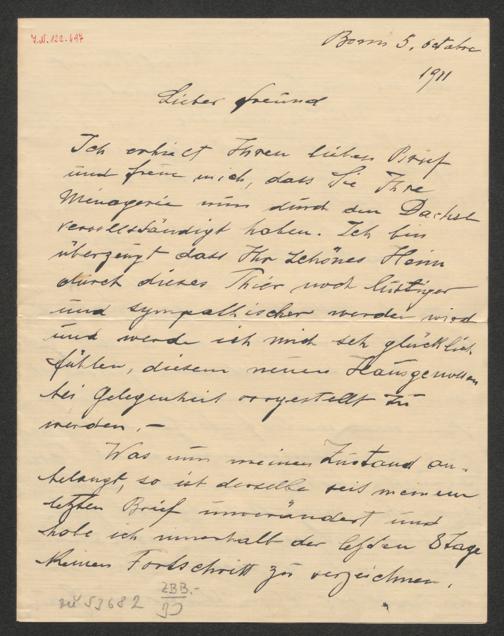 I.N. 122.697
Bonn 5. october
1911
Lieber Freund
Ich erhielt Ihren lieben Brief
und freue mich, dass Sie Ihre
Menagerie nun durch den Dachs
vervollständigt haben. Ich bin
überzeugt dass Ihr schönes Heim
durch dieses Thier noch lustiger
und sympathischer werden wird
und werde ich mich seh glücklich
fühlen, diesem neuen Hausgenossen
bei Gelegenheit vorgestellt zu
werden. –
Was nun meinen Zustand an-
belangt, so ist derselbe seit meinem
letzten Brief unverändert und
habe ich innerhalb der letzten 8 Tage
keinen Fortschritt zu verzeichnen.
53682